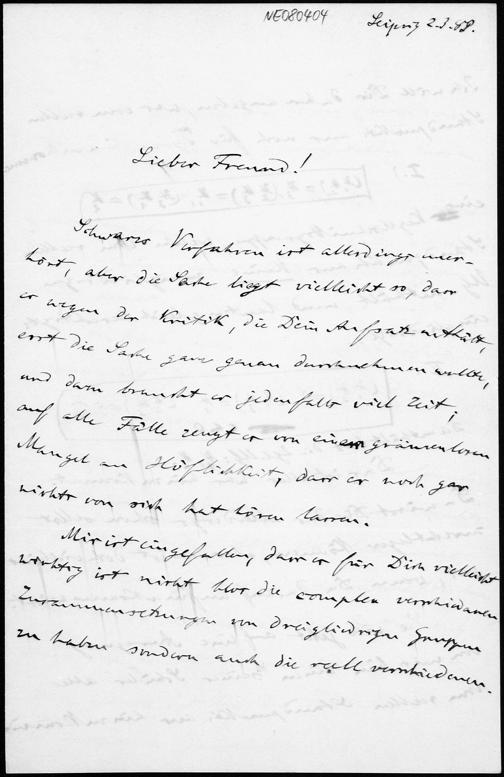 NE080404
Leipzig 2.3.88.
Lieber Freund!
Schwarz's Verfahren ist allerdings uner-
hört, aber die Sache liegt vielleicht so, dass
er wegen der Kritik, die Dein Aufsatz enthält,
erst die Sache ganz genau durchnehmen wollte,
und dazu braucht er jedenfalls viel Zeit;
auf alle Fälle zeugt es von einem gränzenlosen
Mangel an Höflichkeit, dass er noch gar
nichts von sich hat hören lassen.
Mir ist eingefallen, dass es für Dich vielleicht
wichtig ist nicht blos die complex verschiedenen
Zusammensetzungen von dreigliedrigen Gruppen
zu haben sondern auch die reell verschiedenen.